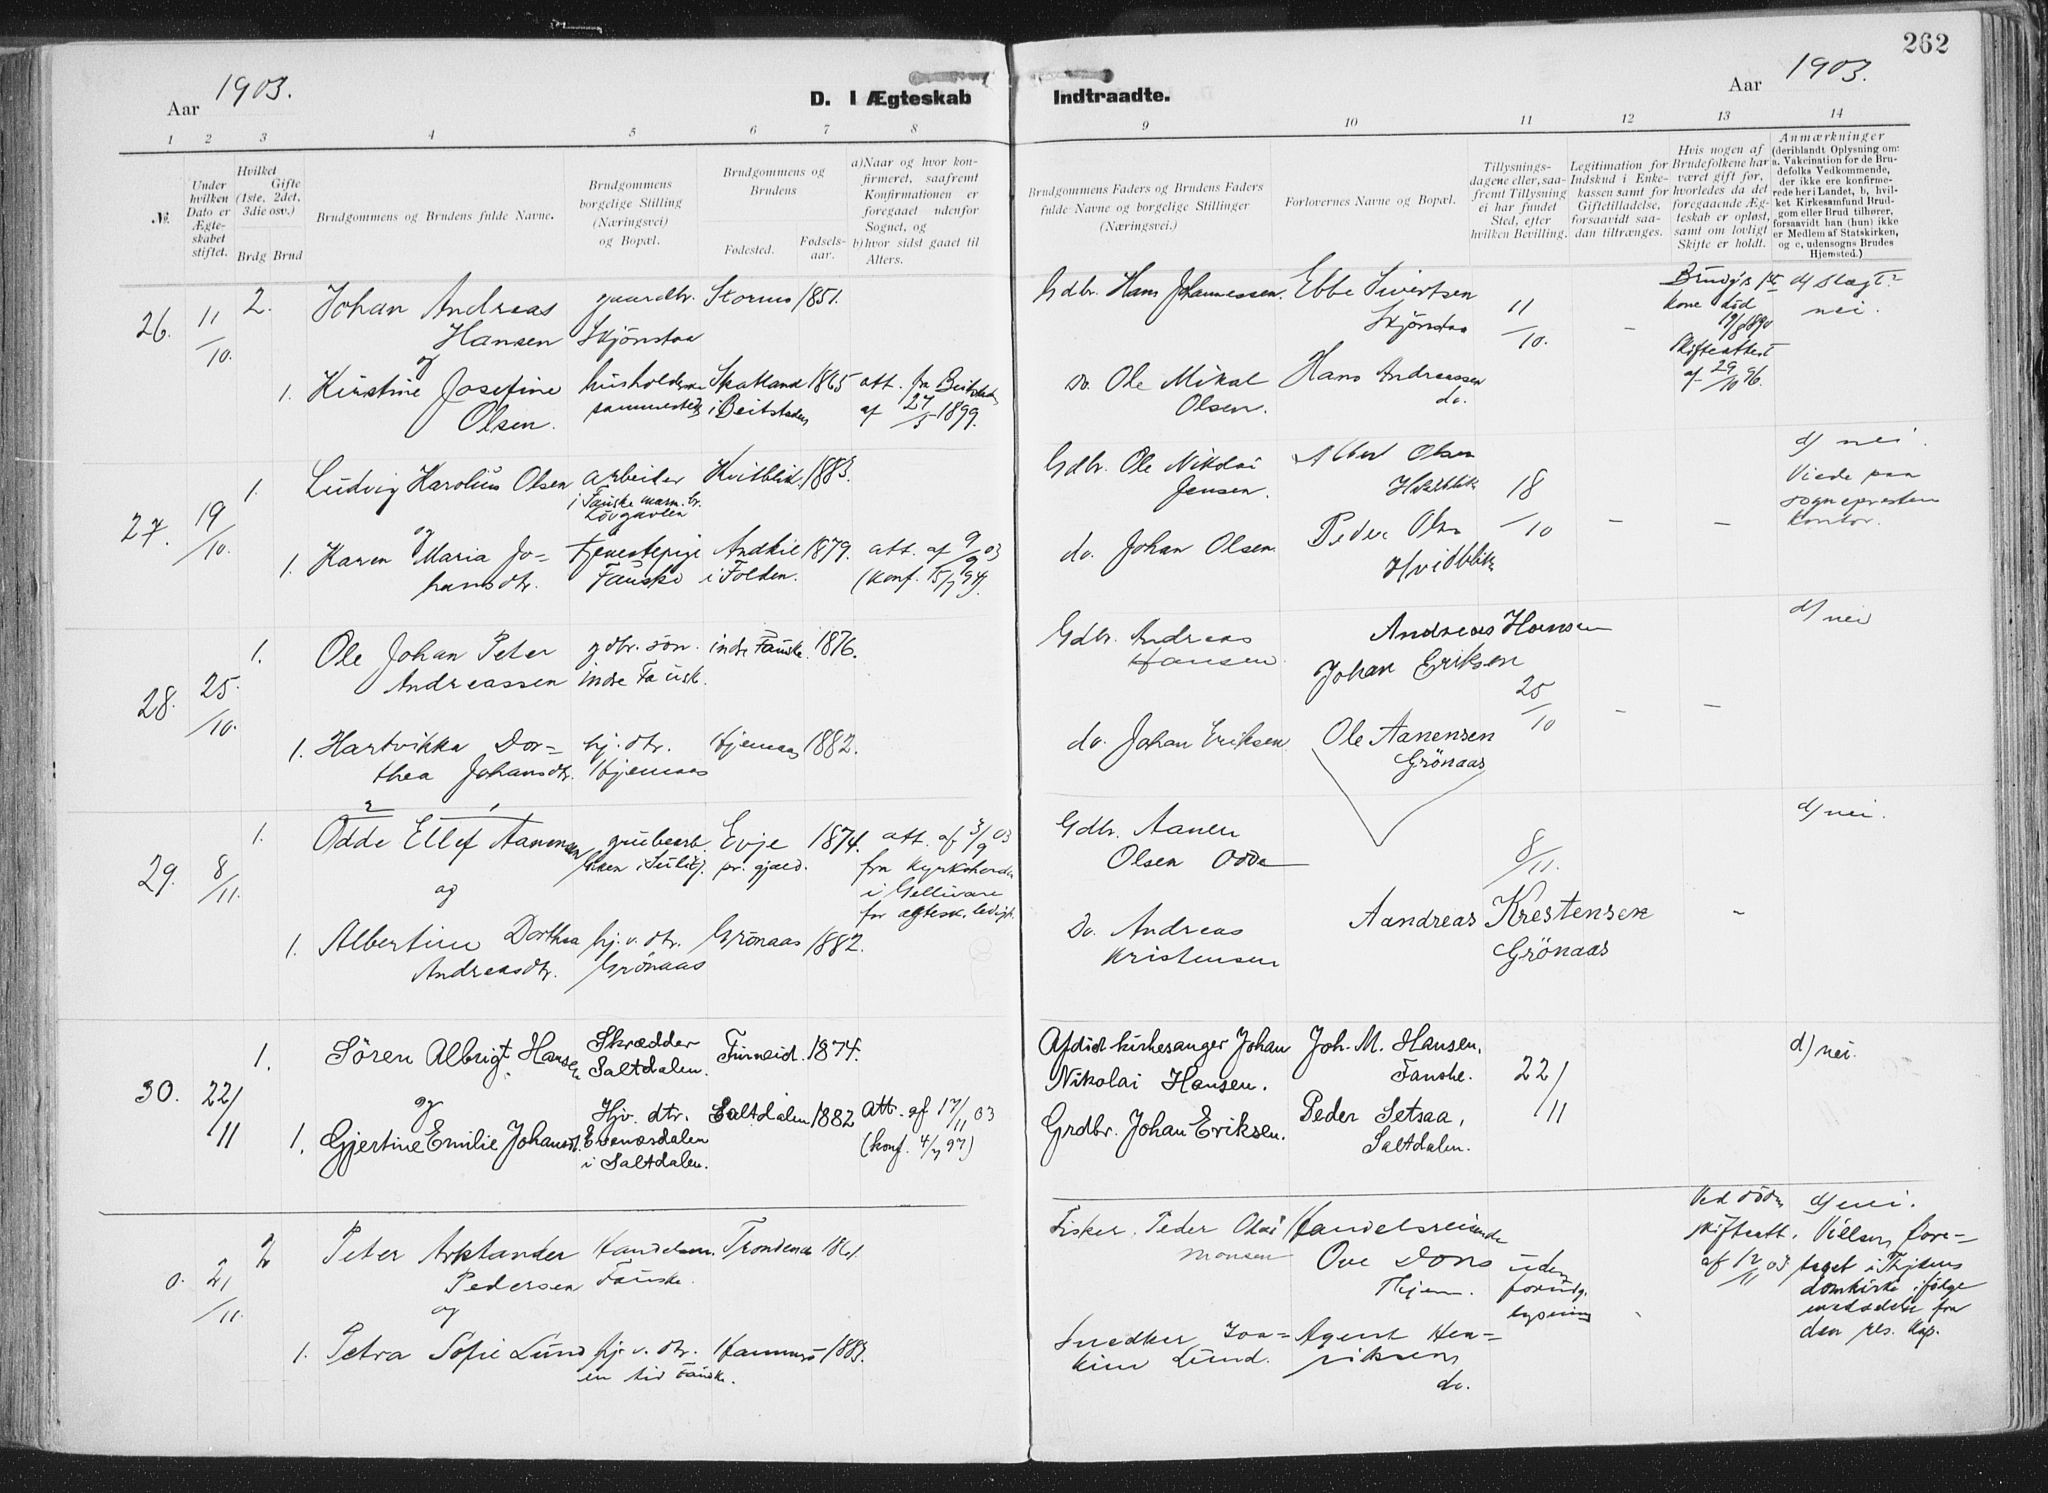 262
Aar 1903.
D. I Ægteskab Indtraadte.
Aar 1903.
1 2 3 4 5 6 7 8 9 10 11 12 13 14
№.
Under
hvilken
Dato er
Ægte-
skabet
stiftet.
Hvilket
Gifte
(1ste, 2det,
3die osv.)
Brdg Brud
Brudgommens og Brudens fulde Navne.
Brudgommens
borgelige Stilling
(Næringsvei)
og Bopæl.
Brudgommens og
Brudens
Fødested.
Fødsels-
aar.
a) Naar og hvor kon-
firmeret, saafremt
Konfirmationen er
foregaaet udenfor
Sognet, og
b) hvor sidst gaaet til
Alters.
Brudgommens Faders og Brudens Faders
fulde Navne og borgelige Stillinger
(Næringsvei.)
Forlovernes Navne og Bopæl.
Tillysnings-
dagene eller, saa-
fremt Tillysning
ei har fundet
Sted, efter
hvilken Bevilling.
Legitimation for
Indskud i Enke-
kassen samt for
Giftetilladelse,
forsaavidt saa-
dan tiltrænges.
Hvis nogen af
Brudefolkene har
været gift før,
hvorledes da det
foregaaende Æg-
teskab er opløst,
samt om lovligt
Skifte er holdt.
Anmærkninger
(deriblandt Oplysning om:
a. Vakcination for de Bru-
defolks Vedkommende,
der ikke ere konfirme-
rede her i Landet, b, hvil-
ket Kirkesamfund Brud-
gom eller Brud tilhører,
forsaavidt han (hun) ikke
er Medlem af Statskirken,
og c, udensogns Brudes
Hjemsted.)
26. 11/10. 2. Johan Andreas
Hansen
gaardbr.
Skjönstaa
1851.
Gdbr. Hans Johannessen.
Ebbe Sivertsen
Skjönstaa
11/10.
-
kone død
19/8 1890
Skifteattest
af 29/10 96.
nei.
og
1. Kirstine Josefine
Olsen.
1865
i Beitstaden
att. fra
af 27/5 1899.
do. Ole Mikal
Olsen.
Hans Andreassen
do.
27. 19/10. 1. Ludvig Karolius Olsen
arbeider
i Fauske marm. br.
Løvgavlen
Kvitblik
1883.
Gdbr. Ole Nikolai
Jensen.
Albert Olsen
18/10
-
-
d) nei.
Viede paa
sogneprestens
kontor.
og
1. Karen Maria Jo-
hansdtr.
tjenestepige
Fauske
i Folden.
1879.
att. af 9/9 03
(konf. 15/7 94).
do. Johan Olsen.
Peder Olsen
Hvidblik
28. 25/10. 1. Ole Johan Peter
Andreassen
gdbr. søn.
indre Fauske.
indre Fauske.
1876.
Gdbr. Andreas
Hansen.
Andreas Hansen
Johan Eriksen
25/10
-
-
d) nei
1. Hartvikka Dor-
thea Johansdtr.
hj. dtr.
1882.
do. Johan Eriksen
Ole Aanensen
Grönaas
29. 8/11. 1. Odde Ellef Aanensen
2 1
grubearb.
i Sulitj.
Evje
pr. gjæld.
1874.
att. af 3/9 03
fra Kyrkoherden
i Gellivare
for ægtesk. ledigh.
Gdbr. Aanen
Olsen Odde
8/11.
d) nei.
og
1. Albertine Dorthea
Andreasdtr.
hj. v. dtr.
Grönaas
Grönaas
1882.
Do. Andreas
Kristensen
Aandreas Krestensen
Grönaas
-
30. 22/11 1. Sören Albrigt Hansen
Skrædder
Saltdalen.
Finneid.
1874.
Afdød kirkesanger Johan
Nikolai Hansen.
Joh. M. Hansen.
Fauske.
22/11
d) nei.
og
1. Gjertine Emilie Johansd.
Hjv. dtr.
Evenesdalen
i Saltdalen.
Saltdalen
1882
Att. af 17/11 03
(konf. 4/7 97)
Grdbr. Johan Eriksen.
Peder Setsaa,
Saltdalen.
0. 21/11. 2 Peter Arktander
Pedersen
Handelsm.
Fauske.
Trondenes
1861.
Fisker. Peder Olai
Monsen
Handelsreisende
Ove Dons
Thjem.
uden
Ved død
skifteatt.
af 12/11 03.
d) nei.
Vielsen fore-
taget i Thjems
domkirke ifølge
meddelelse fra
den res. kap.
og
1. Petra Sofie Lund
hj. v. dtr.
en tid Fauske.
1883.
Snedker Joa-
kim Lund.
Agent Hen-
riksen
do.